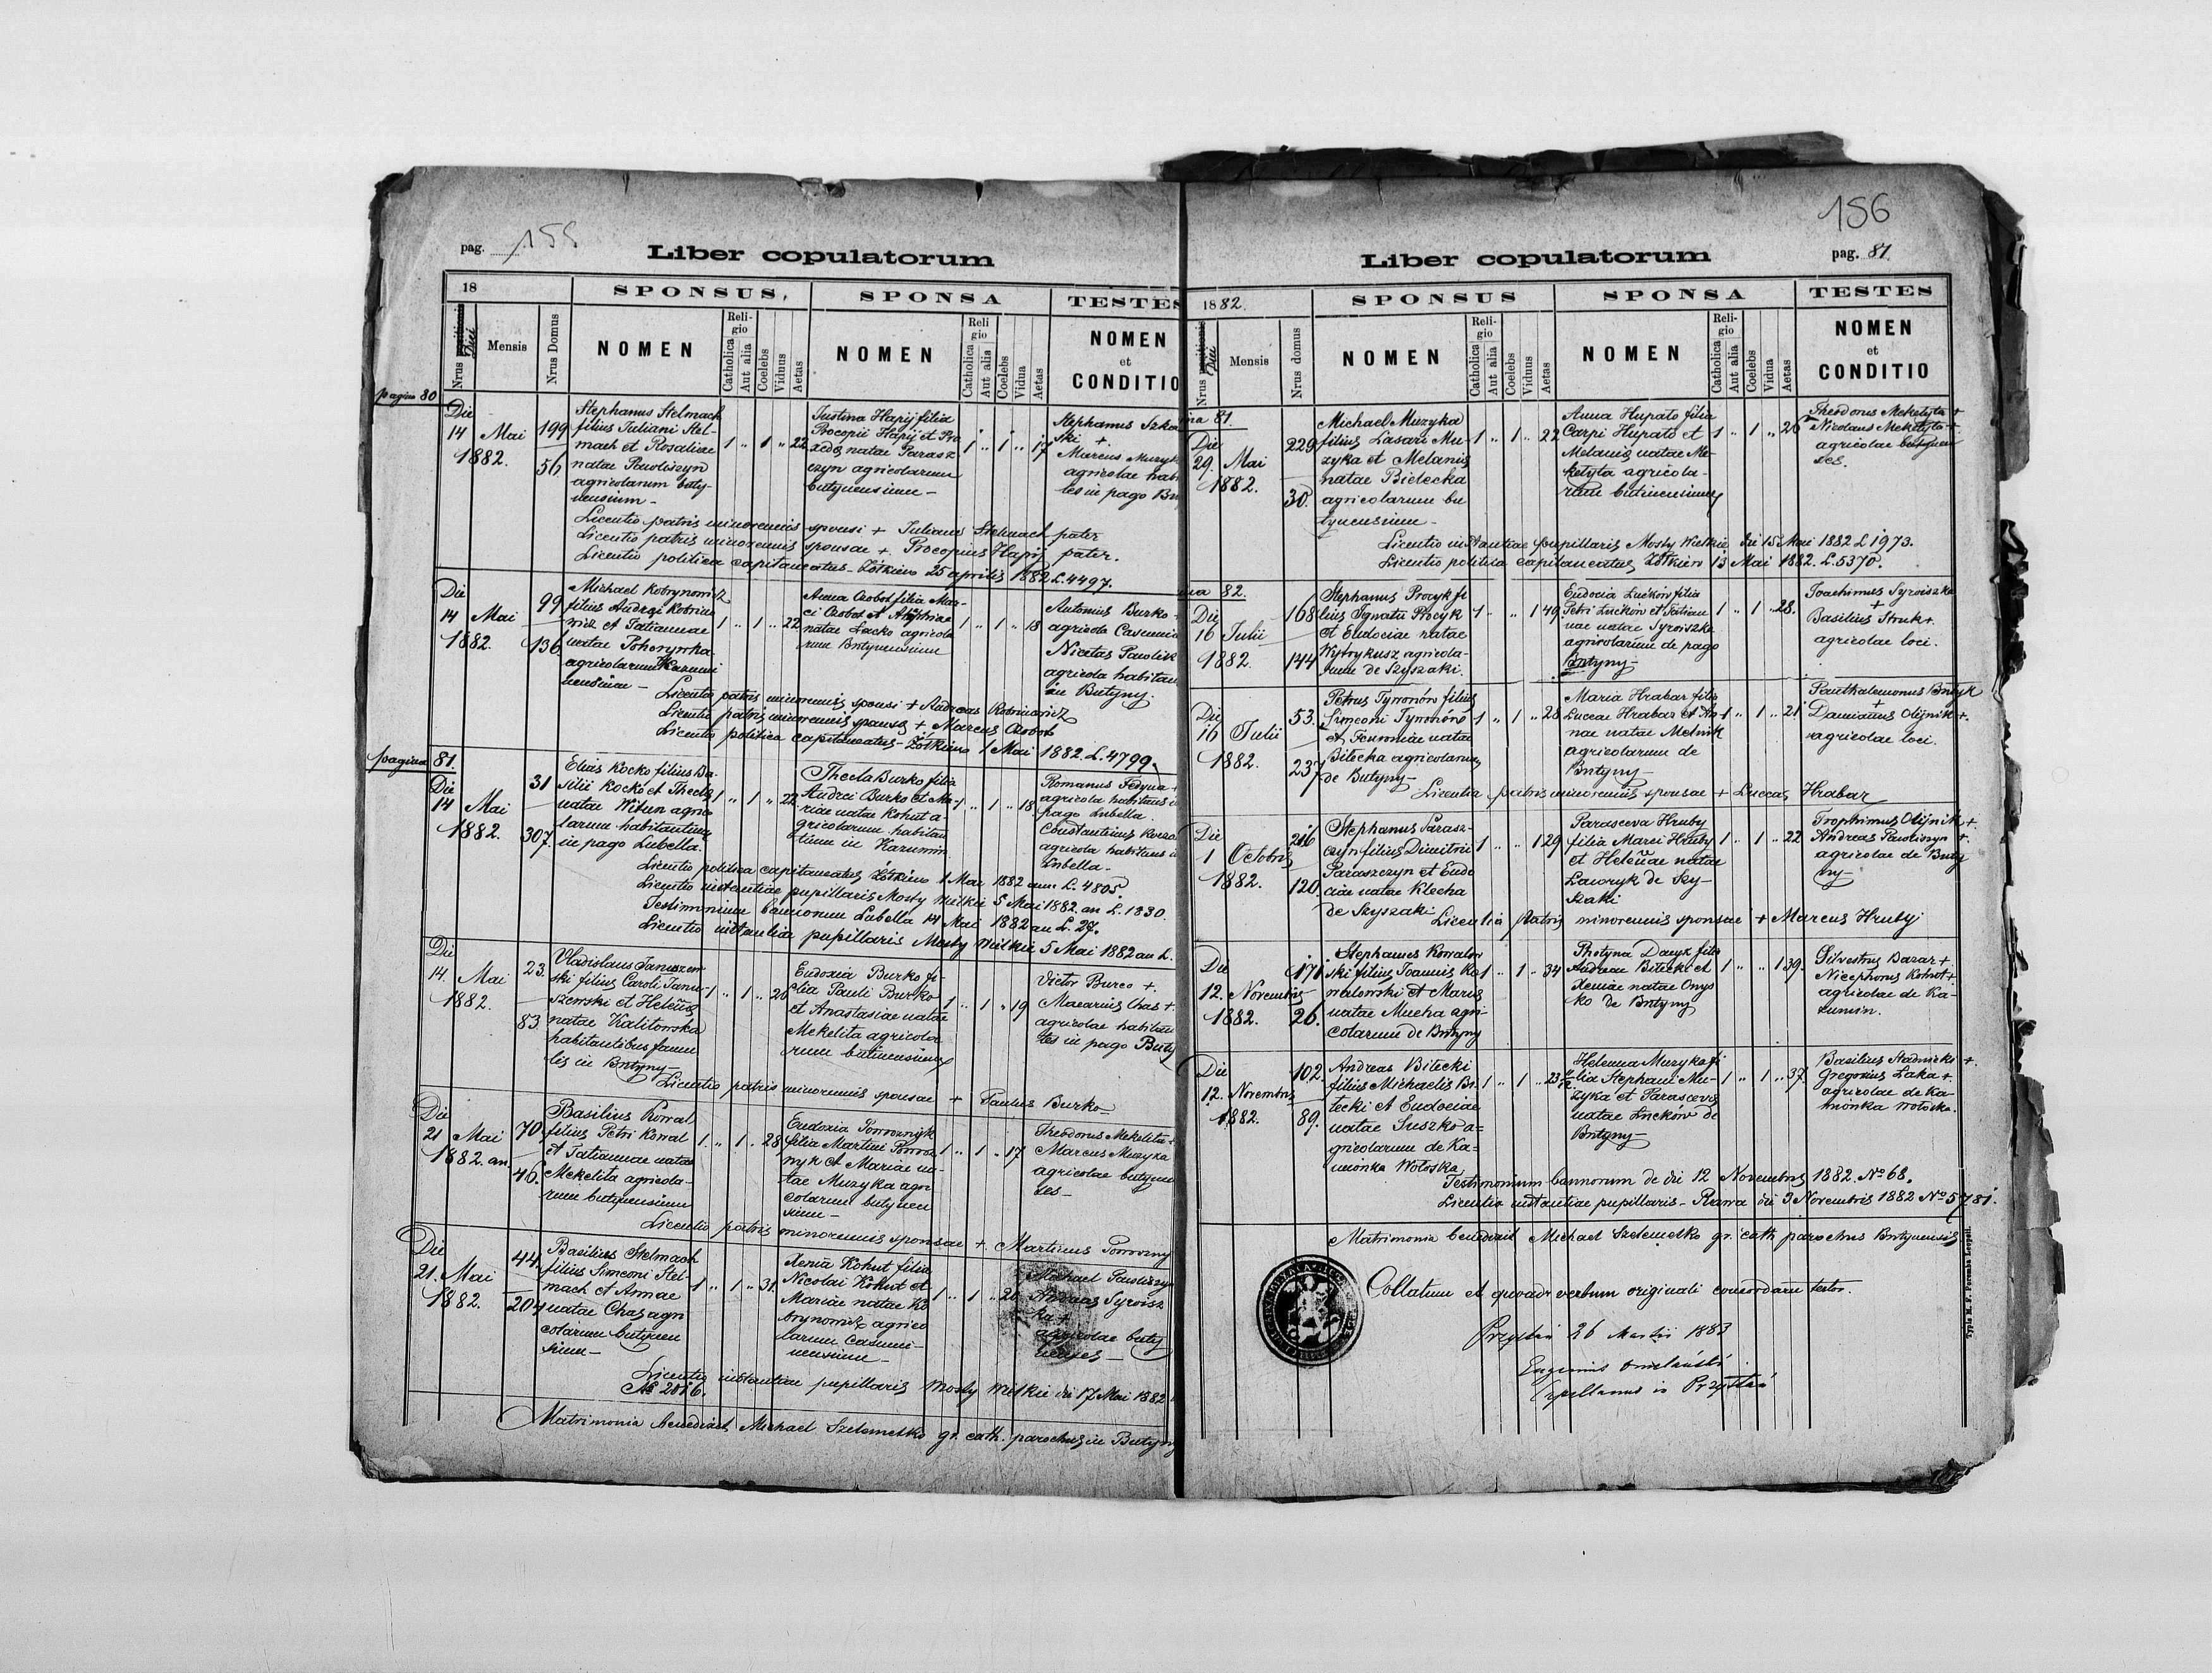 pag. 155
Liber copulatorum
18
SPONSUS,
SPONSA
TESTES
Nrus positionis
Diei
Mensis
Nrus Domus
NOMEN
Religio
Catholica
Aut alia
Coelebs
Viduus
Aetas
NOMEN
Religio
Catholica
Aut alia
Coelebs
Vidua
Aetas
NOMEN
et
CONDITIO
pagina 80
Die
14 Mai
1882.
199
56
Stephanus Stelmach
filius Juliani Stel-
mach et Rosaliae
natae Pawliszyn
agricolarum buty-
nensium -
1 " 1 " 22
Justina Hapij filia
Procopii Hapij et Pra
xedis natae Parasz
czyn agricolarum
butynensium -
1 " 1 " 17
Stephanus
ski +
Marcus Muzyk
agricolae habi
tes in pago Bu
Licentia patris minorennis sponsi + Julianus Stelmach pater
Licentia patris minorennis sponsae +. Procopius Hapij pater.
Licentia politica capitaneatus - Żółkiew 25 aprilis 1882 L. 4497.
Die
14 Mai
1882.
99
136
Michael Kobrynowicz
filius Andrei Kobrino
wicz et Tatiannae
natae
agricolarum Kazumi
nensium -
1 " 1 " 22
Anna Chobot filia Mar-
ci Chobot et
natae Lacko agricola
rum Butynensium
1 " 1 " 18
Antonius Burko +
agricola
Nicetas Pawlik
agricola habitan
in Butyny.
Licentia patris minorennis sponsi + Andreas Kobrinowicz
Licentia patris minorennis sponsae + Marcus Chobot
Licentia politica capitaneatus - Żółkiew 1 Mai 1882. L. 4799.
pagina 81.
Die
14 Mai
1882.
31
307.
Elias Kocko filius Ba-
silii Kocko et Theclae
natae Witun agrico
larum habitantium
in pago Lubella.
1 " 1 " 22
Thecla Burko filia
Andrei Burko et Ma-
riae natae Kohut a-
gricolarum habitan
tium in Kazumin
1 " 1 " 18
Romanus Fedyna +
agricola habitans i
pago Lubella.
Constantinus
agricola habitans i
Lubella.
Licentia politica capitaneatus Żółkiew 1 Mai 1882 ann L. 4805
Licentia instantiae pupillaris Mosty Wielkie 5 Mai 1882. an L. 1830.
Testimonium bannorum Lubella 14 Mai 1882 an L. 27.
Licentia instantiae pupillaris Mosty Wielkie 5 Mai 1882 an L.
Die
14. Mai
1882.
23.
83.
Vladislaus Januszew
ski filius Caroli Janu-
szewski et Helenae
natae Kalitowska
habitantibus famu
lis in Butyny
1 " 1 " 26
Eudoxia Burko fi-
lia Pauli Burko
et Anastasiae natae
Mekelita agricola
rum butinensium
1 " 1 " 19
Victor Burco +.
Macarius Chas +.
agricolae habitan
tes in pago Buty
Licentia patris minorennis sponsae + Paulus Burko
Die
21 Mai
1882. an.
70.
46.
Basilius Kowal
filius Petri Kowal
et Tatiannae natae
Mekelita agricola-
rum butynensium
1 " 1 " 28
Eudoxia Poworoznyk
filia Martini Poworoz
nyk et Mariae na-
tae Muzyka agri
colarum butynen
sium -
1 " 1 " 17
Theodorus Mekelita +
Marcus Muzyka
agricolae butynen
ses -
Licentia patris minorennis sponsae +. Martinus
Die
21. Mai
1882.
44.
204
Basilius Stelmach
filius Simeoni Stel-
mach et Annae
natae Chas agri
colarum butynen
sium -
1 " 1 " 31.
Xenia Kohut filia
Nicolai Kohut et
Mariae natae Ko
brynowicz agrico
larum Casumi-
nensium -
1 " 1 " 20
Michael Pawliszyn
Andreas Syroisz
ka +
agricolae buty
nenses -
Licentia instantiae pupillaris Mosty Wielkie die 17 Mai 1882
No 2016.
Matrimonia benedixit Michael Szelemetko gr. cath. parochus in Butyny
156
Liber copulatorum
pag. 81
1882.
SPONSUS
SPONSA
TESTES
Nrus positionis
Diei
Mensis
Nrus domus
NOMEN
Religio
Catholica
Aut alia
Coelebs
Viduus
Aetas
NOMEN
Religio
Catholica
Aut alia
Coelebs
Vidua
Aetas
NOMEN
et
CONDITIO
ina 81.
Die
29. Mai
1882.
229
30.
Michael Muzyka
filius Lasari Mu-
zyka et Melaniae
natae Bielecka
agricolarum bu
tynensium -
1 " 1 " 22
Anna Hupalo filia
Carpi Hupalo et
Melaniae natae Me-
ketyta agricola-
rum butinensium
1 " 1 " 26
Theodorus Meketyta +
Nicolaus Meketyta +.
agricolae butynen
ses.
Licentia instantiae pupillaris Mosty Wielkie die 15 Mai 1882 L 1973.
Licentia politica capitaneatus Żółkiew 13 Mai 1882. L. 5370.
ina 82.
Die
16 Julii
1882.
168
144
Stephanus Procyk fi
lius Ignatii Procyk
et Eudociae natae
Wytrykusz agricola-
rum de Szyszaki.
1 " " 1 49
Eudocia Lućków filia
Petri Lućków et Tatian
nae natae Syroiszka
agricolarum de pago
Butyny -
1 " 1 " 28.
Joachimus Syroiszka
+
Basilius Struk +.
agricolae loci.
Die
16 Julii
1882.
53.
237
Petrus Tymonów filius
Simeoni Tymonów
et Euroniae natae
Bilecka agricolarum
de Butyny -
1 " 1 " 28
Maria Hrabar filia
Luccae Hrabar et An-
nae natae Melnik
agricolarum de
Butyny -
1 " 1 " 21
Panthalemonus Butyk
+
Damianus Olijnik +.
agricolae loci.
Licentia patris minorennis sponsae + Luccas Hrabar
Die
1 Octobris
1882.
216
120
Stephanus Parasz-
czyn filius Dimitrii
Paraszczyn et Eudo
ciae natae Klecha
de Szyszaki
1 " " 1 29
Parasceva Hruby
filia Marci Hruby
et Helenae natae
Lawryk de Szy-
szaki
1 " 1 " 22
Trophimus Olijnik +.
Andreas Pawliszyn +.
agricolae de Buty
ny -
Licentia patris minorennis sponsae + Marcus Hrubyj
Die
12. Novembris
1882.
171.
26.
Stephanus Kowalow
ski filius Joannis Ko
walowski et Mariae
natae Mucha agri-
colarum de Butyny
1 " 1 " 34
Photyna Dacyk filia
Andreae Bilecki et
Xeniae natae Onys
ko de Butyny
1 " " 1 39.
Silvestrus Dazar +
Nicephorus Kohut +.
agricolae de Ka-
zumin.
Die
12. Novembris
1882.
102.
89.
Andreas Bilecki
filius Michaelis Bi-
lecki et Eudociae
natae Juszko a-
gricolarum de Ka-
mionka Wołoska
1 " 1 " 23
Helenna Muzyka fi
lia Stephani Mu-
zyka et Parascevae
natae Luckow de
Butyny -
1 " 1 " 37.
Basilius Stadnicki +
Gregorius Laka +.
agricolae de Ka-
mionka wołoska.
Testimonium bannorum de die 12 Novembris 1882. No 68.
Licentia instantiae pupillaris - Rawa die 9 Novembris 1882 No 5781.
Matrimonia benedixit Michael Szelemetko gr. cath parochus Butynensis
Collatum et quoad verbum originali concordare testor.
Przystań 26 Martii 1883
Eugenius
Capellanus in Przystań
Typis M. F. Poremba Leopoli.